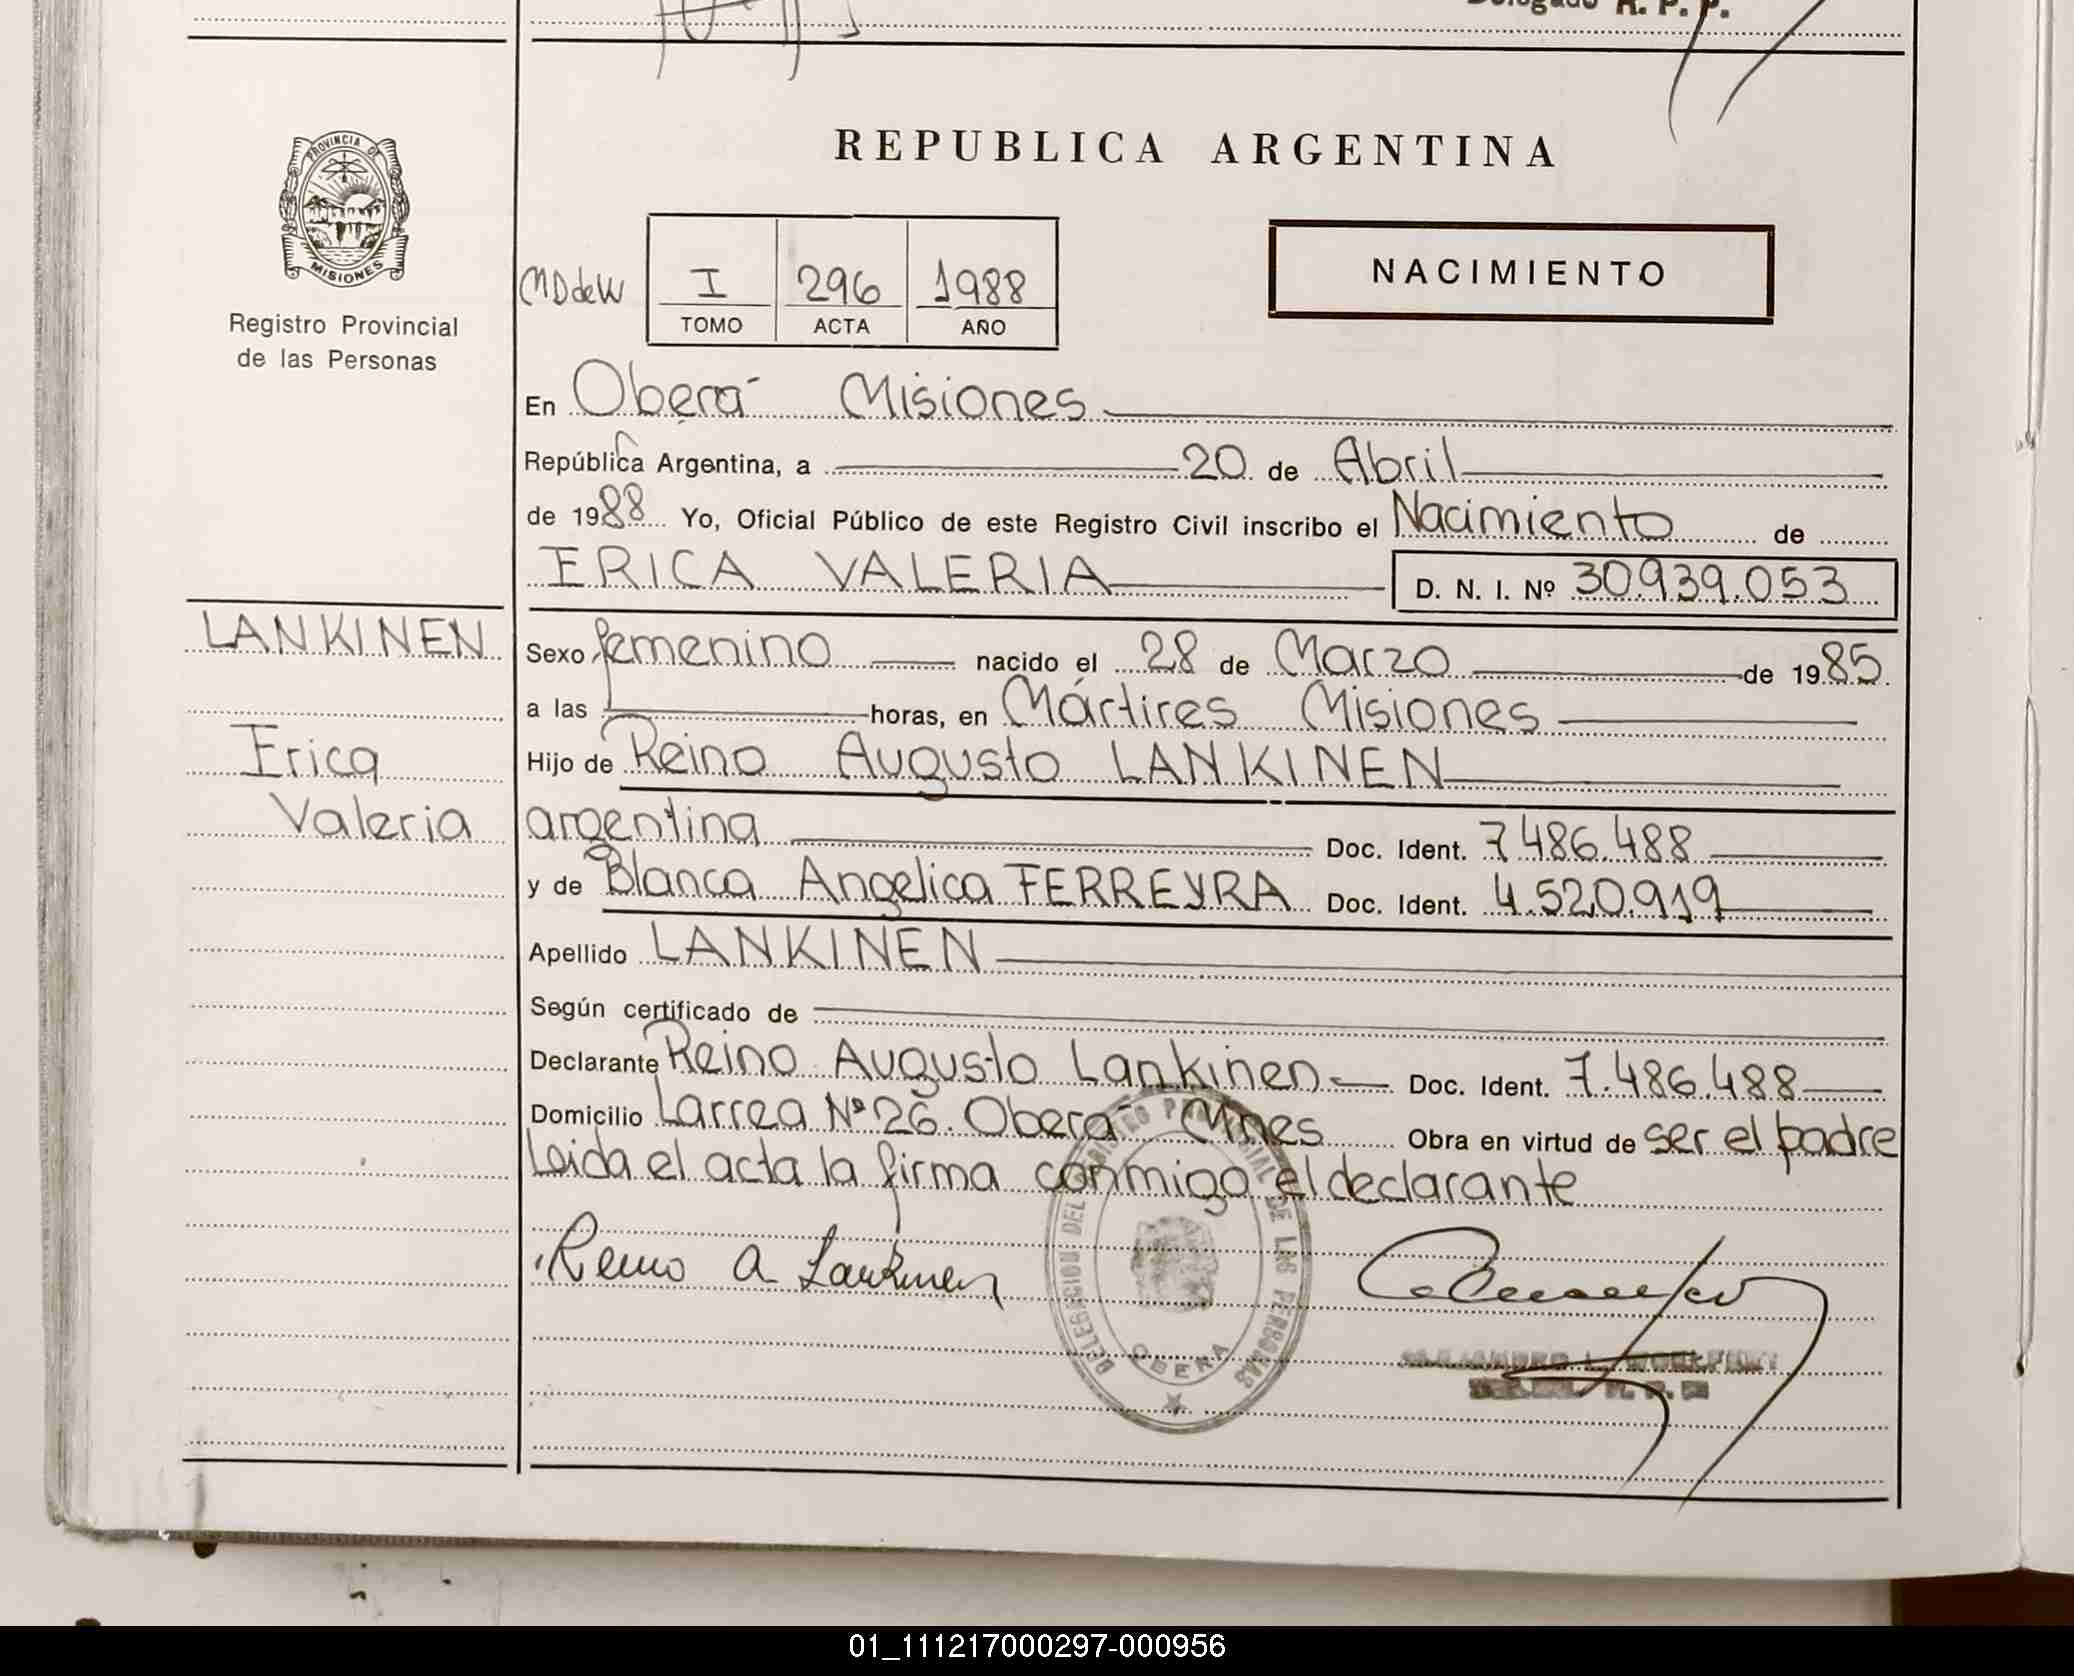 Delegado R. P. P.
PROVINCIA DE
MISIONES
Registro Provincial
de las Personas
REPUBLICA ARGENTINA
MDdeW
I 296 1988
TOMO ACTA AÑO
NACIMIENTO
En Oberá Misiones
República Argentina, a 20 de Abril
de 1988 Yo, Oficial Público de este Registro Civil inscribo el Nacimiento de
ERICA VALERIA D. N. I. Nº 30.939.053
LANKINEN
Erica
Valeria
Sexo femenino nacido el 28 de Marzo de 1985
a las horas, en Mártires Misiones
Hijo de Reino Augusto LANKINEN
argentina Doc. Ident. 7486.488
y de Blanca Angelica FERREYRA Doc. Ident. 4.520.919
Apellido LANKINEN
Según certificado de
Declarante Reino Augusto Lankinen Doc. Ident. 7.486.488
Domicilio Larrea Nº 26. Oberá Mnes Obra en virtud de ser el padre
Leida el acta la firma conmigo el declarante
Reino A Lankinen
DELEGACION DEL REGISTRO PROVINCIAL DE LAS PERSONAS
OBERA
01_111217000297-000956